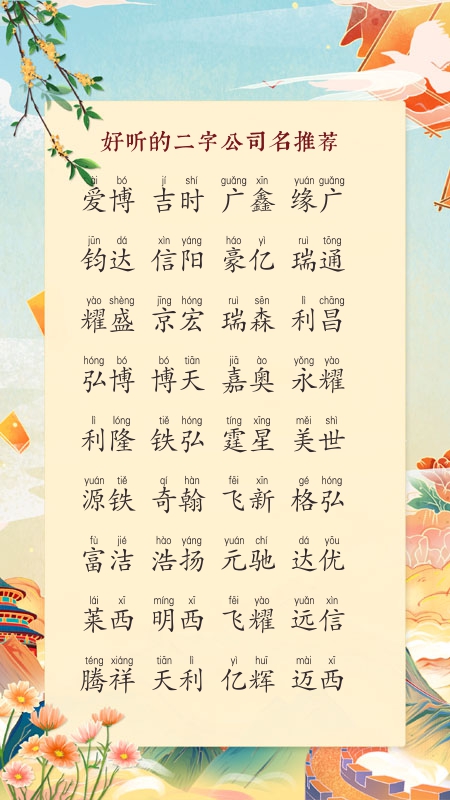 好听的二字公司名推荐
ài bó jí shí guǎng xīn yuán guǎng
爱博 吉时 广鑫 缘广
jūn dá xìn yáng háo yì ruì tōng
钧达 信阳 豪亿 瑞通
yào shèng jīng hóng ruì sēn lì chāng
耀盛 京宏 瑞森 利昌
hóng bó bó tiān jiā ào yǒng yào
弘博 博天 嘉奥 永耀
lì lóng tiě hóng tíng xīng měi shì
利隆 铁弘 霆星 美世
yuán tiě qí hàn fēi xīn gé hóng
源铁 奇翰 飞新 格弘
fù jié hào yáng yuán chí dá yōu
富洁 浩扬 元驰 达优
lái xī míng xī fēi yào yuǎn xìn
莱西 明西 飞耀 远信
téng xiáng tiān lì yì huī mài xī
腾祥 天利 亿辉 迈西